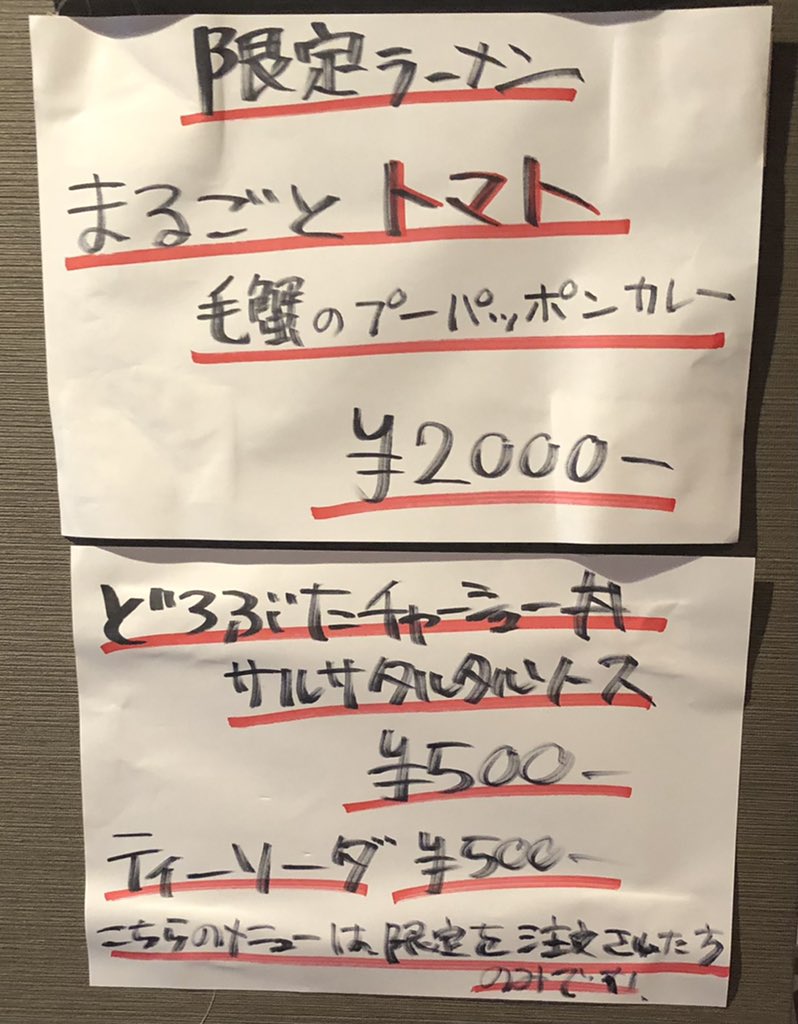 限定ラーメン
まるごとトマト
毛蟹のプーパッポンカレー
¥2000-
どろぶたチャーシュー丼
サルサタルタルソース
¥500-
ティーソーダ ¥500-
こちらのメニューは、限定を注文された方
のみです!